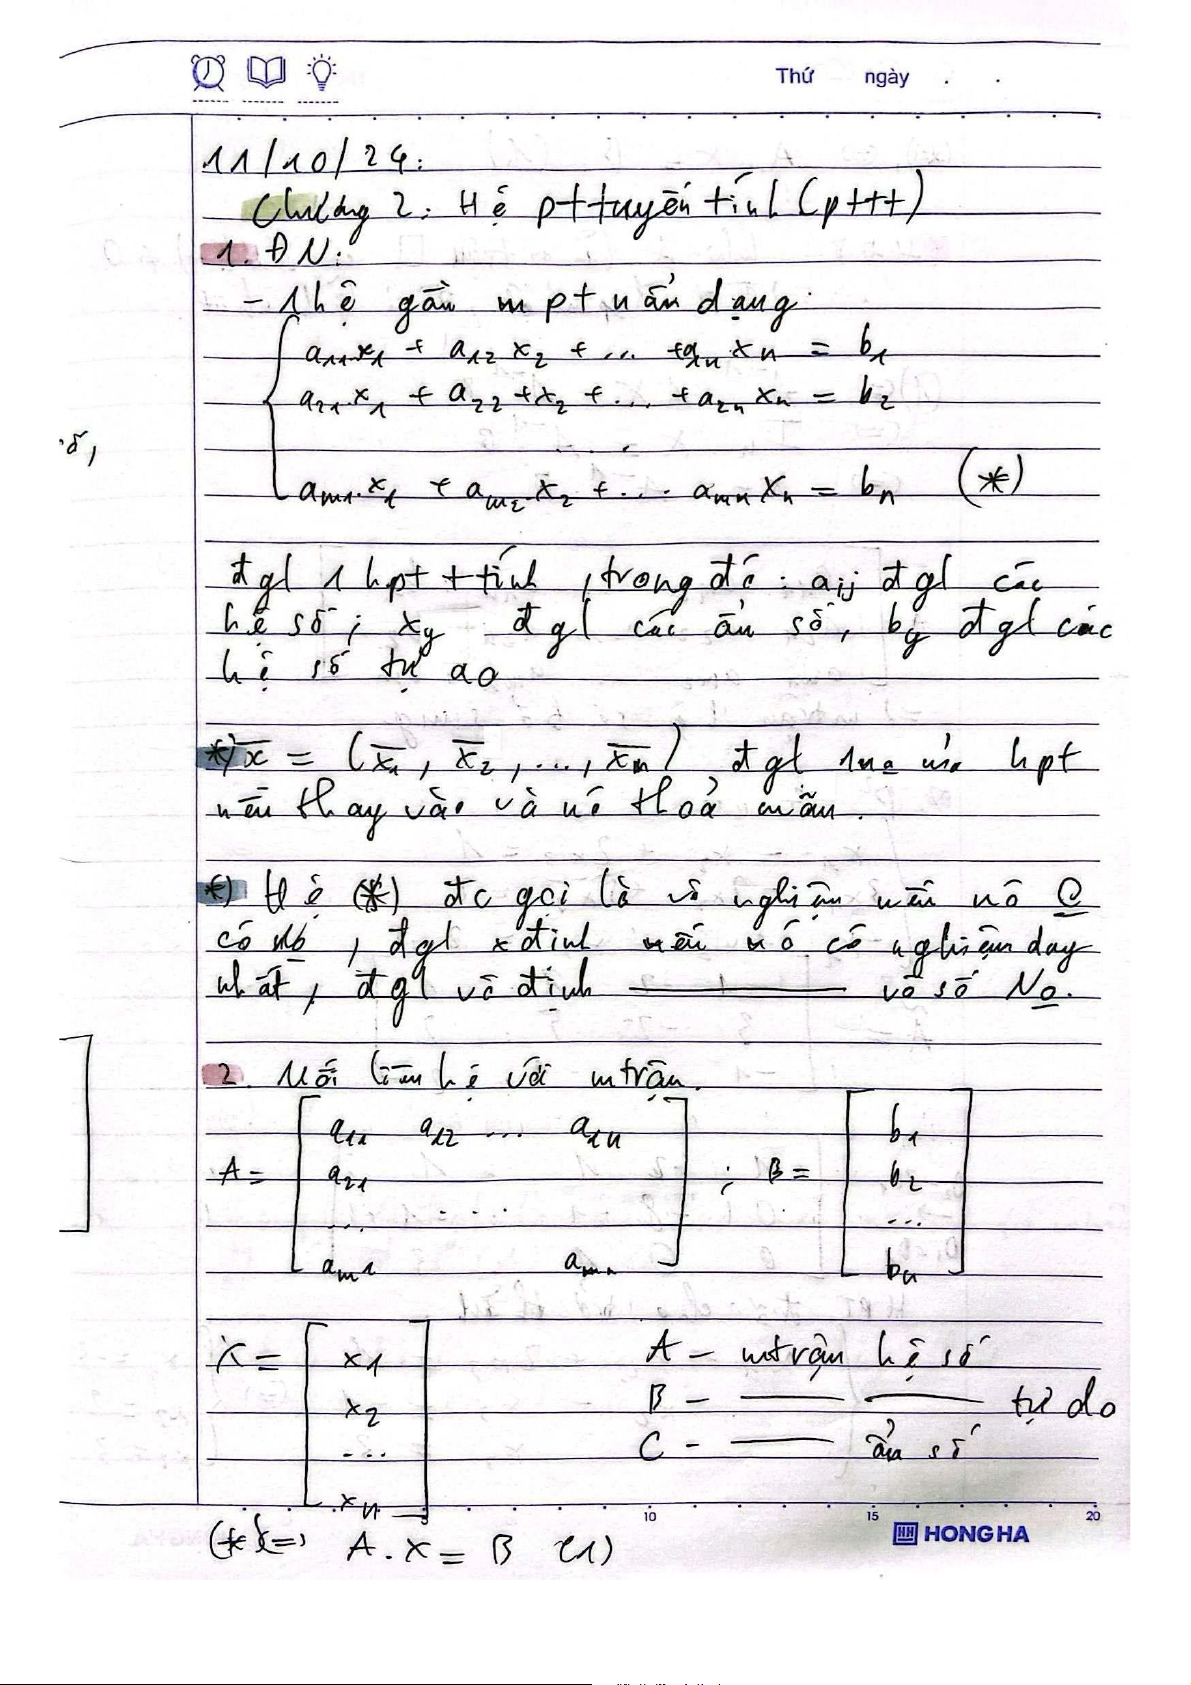 Thứ ngày . .
11/10/24:
Chương 2: Hệ pt tuyến tính (pttt)
1. ĐN:
- 1 hệ gồm m pt n ẩn dạng:
a11.x1 + a12 x2 + ... + a1n xn = b1
a21.x1 + a22 + x2 + ... + a2n xn = b2
...
am1.x1 + am2.x2 + ... amn xn = bn (*)
đgl 1 hpt t tính, trong đó: aij đgl các
hệ số; xj đgl các ẩn số, bj đgl các
hệ số tự do
*) x̄ = (x̄1, x̄2, ..., x̄n) đgl 1 no của hpt
nếu thay vào và nó thoả mãn.
*) Hệ (*) đc gọi là vô nghiệm nếu nó
có no, đgl xđịnh nếu nó có nghiệm duy
nhất, đgl vô định ——— vô số No.
2. Mối liên hệ với mtrận.
A = [ a11 a12 ... a1n ; B = [ b1
a21 b2
... ... ...
am1 amn ] bn ]
X = [ x1 A - mtrận hệ số
x2 B - —— —— tự do
... C - —— ẩn số
xn ]
10 15 20
HONG HA
(*) <=> A.X = B (1)
số,